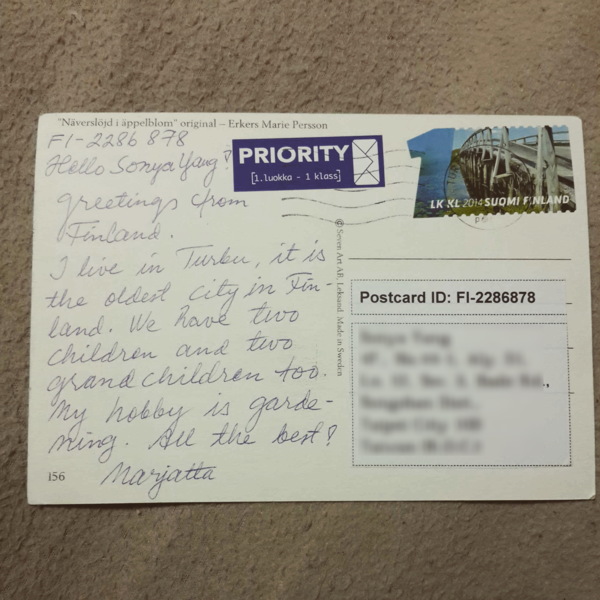 "Näverslöjd i äppelblom" original – Erkers Marie Persson
FI-2286 878
Hello Sonya Yang!
greetings from
Finland.
I live in Turku, it is
the oldest city in Fin-
land. We have two
children and two
grandchildren too.
My hobby is garde-
ning. All the best!
Marjatta
156
PRIORITY
[1.luokka - 1 klass]
1
LK KL 2014 SUOMI FINLAND
© Seven Art AB, Leksand. Made in Sweden
Postcard ID: FI-2286878